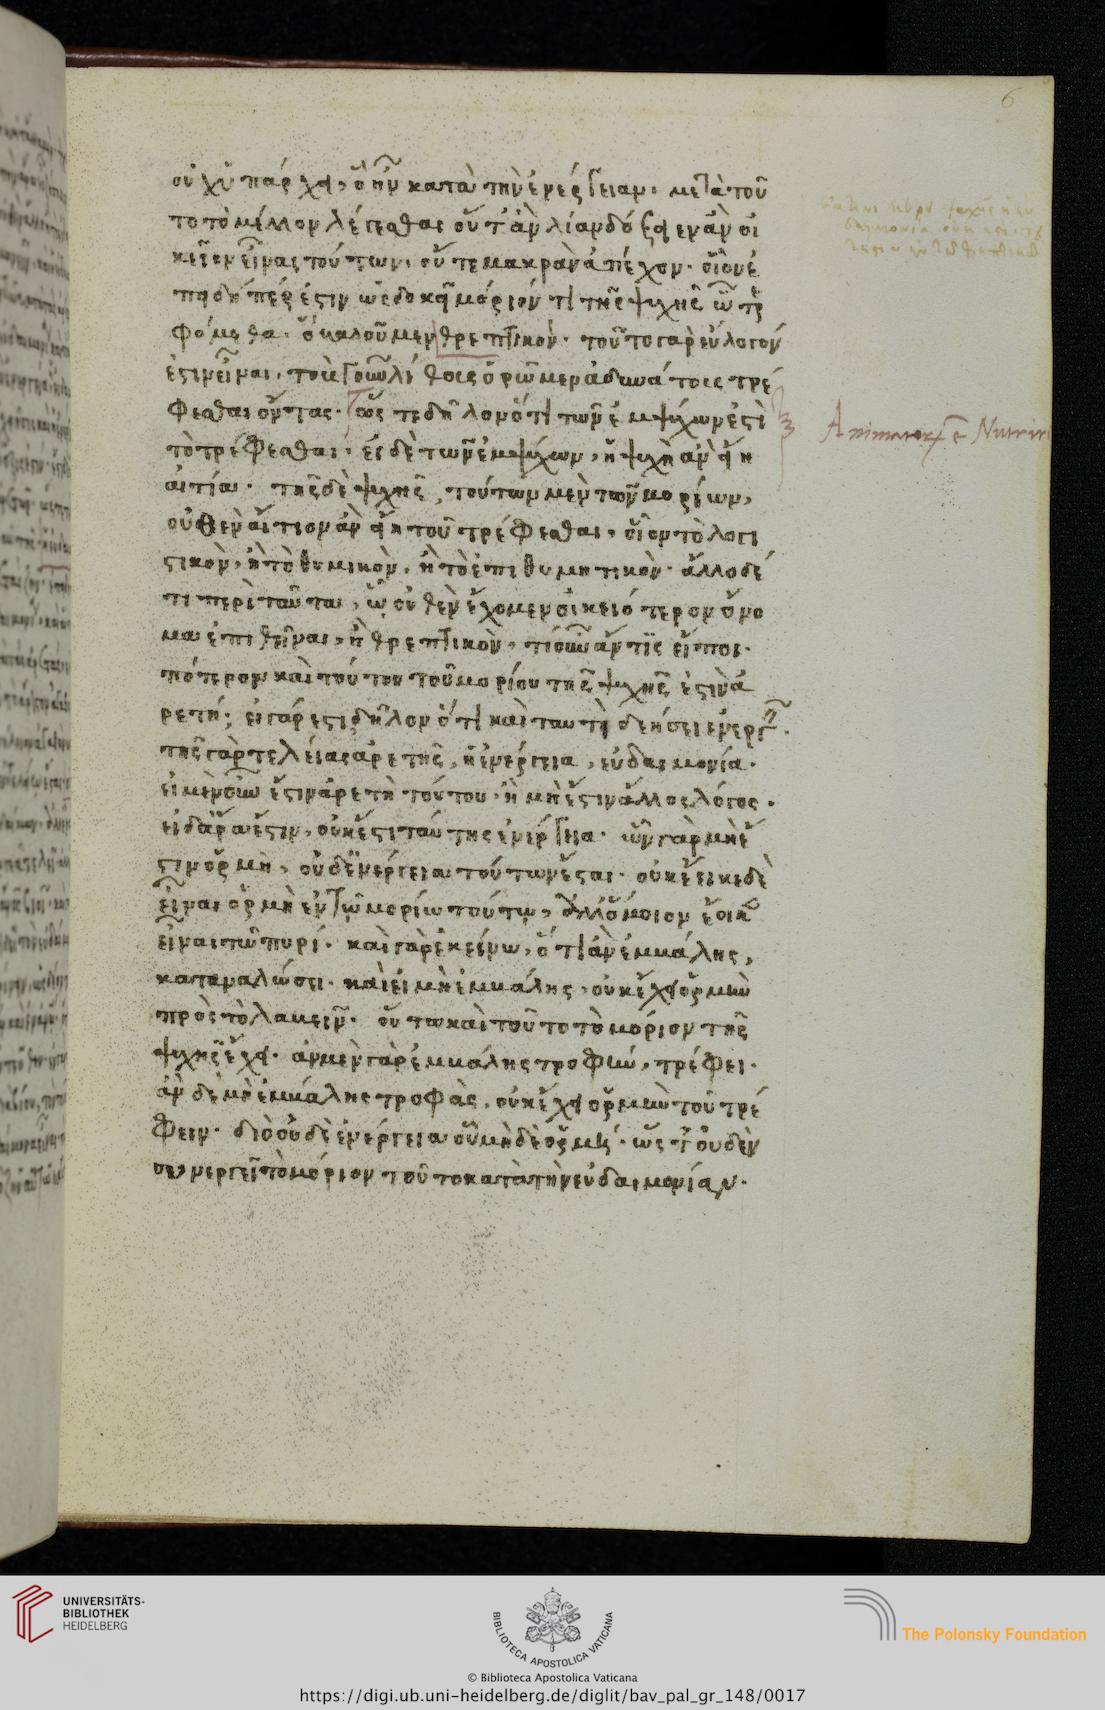 6
οὐχ ὑπάρχει, ὃ ἦν κατὰ τὴν ἐνέργειαν. μετὰ τοῦ
το τὸ μέλλον λέγεσθαι οὔτ' ἂν λίαν δόξειεν ἂν οἰ
κεῖον εἶναι τούτων. οὔτε μακρὰν ἀπέχον. οἷον ἐ
πειδήπερ ἐστιν ὡς δοκεῖ μόριόν τι τῆς ψυχῆς ᾧ τρε
φόμεθα. ὃ καλοῦμεν θρεπτικόν. τοῦτο γὰρ εὔλογόν
ἐστιν εἶναι. τοὺς γοῦν λίθους ὁρῶμεν ἀδυνάτους τρέ
φεσθαι ὄντας. ὥστε δῆλον ὅτι τῶν ἐμψύχων ἐστὶ
τὸ τρέφεσθαι. εἰ δὲ τῶν ἐμψύχων, ἡ ψυχὴ ἂν εἴη
αἰτία. τῆς δὲ ψυχῆς, τούτων μὲν τῶν μορίων,
οὐθὲν αἴτιον ἂν εἴη τοῦ τρέφεσθαι, οἷον τὸ λογι
στικὸν, ἢ τὸ θυμικὸν, ἢ τὸ ἐπιθυμητικὸν. ἄλλο δέ
τι περὶ ταῦτα, ᾧ οὐθὲν ἔχομεν οἰκειότερον ὄνο
μα ἐπιθεῖναι, ἢ θρεπτικὸν, τί οὖν ἄν τις εἴποι.
πότερον καὶ τούτου τοῦ μορίου τῆς ψυχῆς ἐστιν ἀ
ρετή; εἰ γάρ ἐστι, δῆλον ὅτι καὶ ταύτῃ δεήσει ἐνεργ.
τῆς γὰρ τελείας ἀρετῆς, ἡ ἐνέργεια, εὐδαιμονία.
εἰ μὲν οὖν ἔστιν ἀρετὴ τούτου ἢ μὴ ἔστιν ἄλλος λόγος.
εἰ δ' ἄρα ἔστιν, οὐκ ἔστι ταύτης ἐνέργεια. ὧν γὰρ μὴ ἔ
στιν ὁρμὴ, οὐδ' ἐνέργεια τούτων ἔσται. οὐκ ἔοικε δὲ
εἶναι ὁρμὴ ἐν τῷ μορίῳ τούτῳ, ἀλλ' ὅμοιον ἔοικεν
εἶναι τῷ πυρί. καὶ γὰρ ἐκείνῳ, ὅ τι ἂν ἐμβάλῃς,
καταναλώσει. καὶ εἰ μὴ ἐμβάλῃς, οὐκ ἔχει ὁρμὴν
πρὸς τὸ λαβεῖν. οὕτω καὶ τοῦτο τὸ μόριον τῆς
ψυχῆς ἔχει. ἂν μὲν γὰρ ἐμβάλῃς τροφήν, τρέφει.
ἂν δὲ μὴ ἐμβάλῃς τροφὰς, οὐκ ἔχει ὁρμὴν τοῦ τρέ
φειν. διὸ οὐδὲ ἐνέργεια οὗ μηδὲ ὁρμή. ὥστ' οὐδὲν
συνεργεῖ τὸ μόριον τοῦτο κατὰ τὴν εὐδαιμονίαν.
UNIVERSITÄTS-
BIBLIOTHEK
HEIDELBERG
BIBLIOTECA APOSTOLICA VATICANA
The Polonsky Foundation
© Biblioteca Apostolica Vaticana
https://digi.ub.uni-heidelberg.de/diglit/bav_pal_gr_148/0017